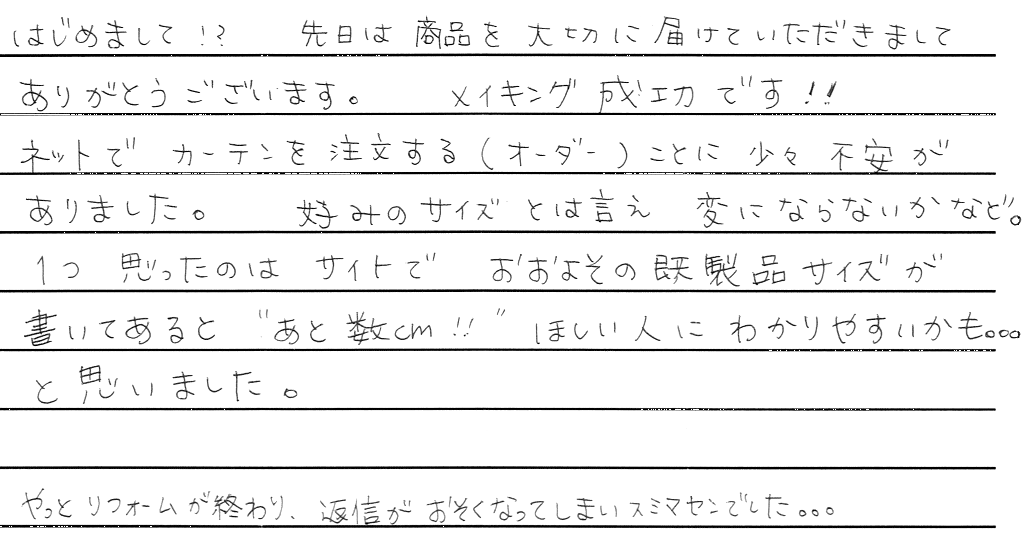 はじめまして!? 先日は 商品を 大切に 届けていただきまして
ありがとうございます。 メイキング 成功です!!
ネットで カーテンを 注文する(オーダー)ことに 少々 不安が
ありました。 好みのサイズとは言え 変にならないかなど。
1つ 思ったのは サイトで おおよその既製品サイズが
書いてあると "あと数cm!!" ほしい人に わかりやすいかも。。。
と思いました。
やっとリフォームが終わり、返信が おそくなってしまいスミマセンでした。。。